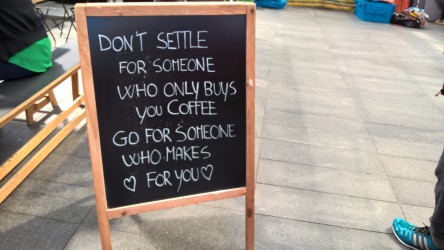 DON'T SETTLE
FOR SOMEONE
WHO ONLY BUYS
YOU COFFEE
GO FOR SOMEONE
WHO MAKES
♡ FOR YOU ♡